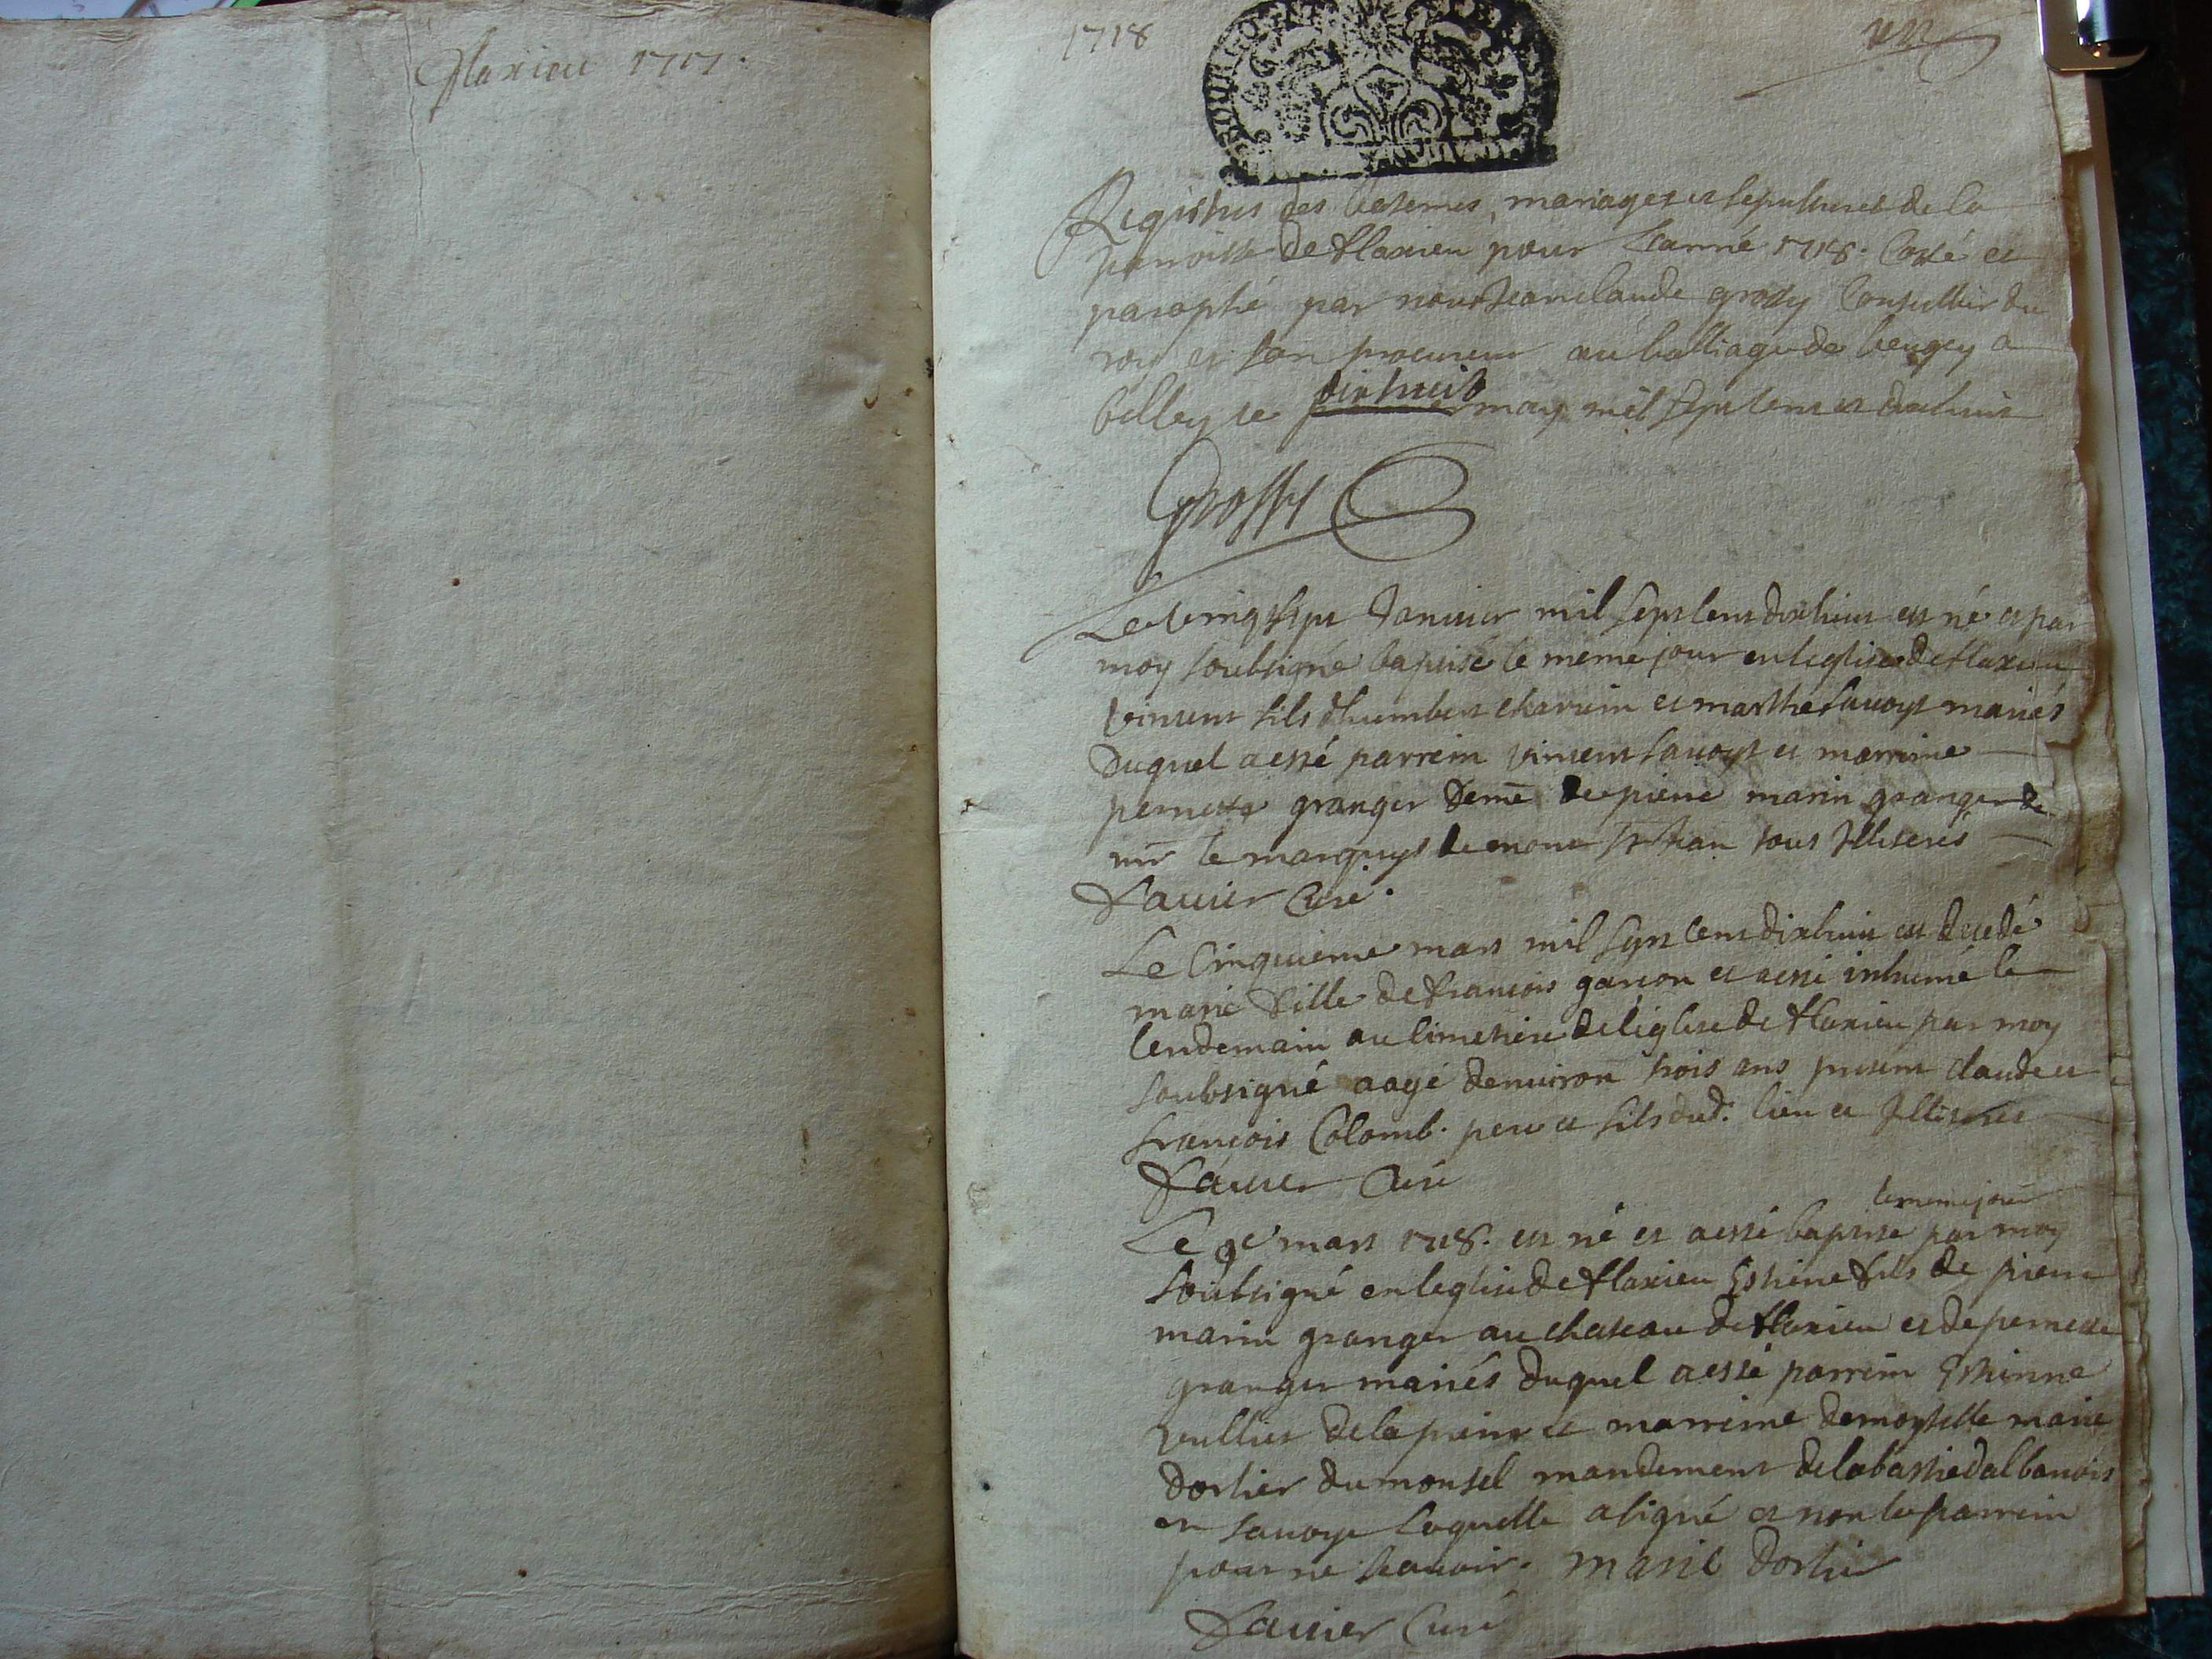 Flaxieu 1717.
1718
Registres des batemes, mariages et sepultures de la
parroisse de flaxieu pour lanné 1718. Cotté et
paraphé par nous Jean claude grossy Conseillier du
roy et son procureur au balliage de beugey a
belley ce dixhuit may mil sept cent et dixhuit
Grossy
Le vingt sept Janvier mil sept cent dixhuit est né et par
moy soubsigné baptisé le meme jour en leglise de flaxieu
vincent fils dhumbert charvin et marthe savoye mariés
duquel a esté parrein vincent savoye et marreine
pernette granger feme de pierre marin granger de
mr le marquys de mont St Jean tous Illiterés
favier Curé.
Le Cinquieme mars mil sept cent dixhuit est decedé
marie fille de francois garçon et a esté inhumé le
lendemain au Cimetiere de léglise de flaxieu par moy
soubsigné aagé denviron trois ans present claude et
françois Colomb. pere et fils dud. lieu et Illiterés
favier Curé
le meme jour
Le 9e mars 1718. est né et a esté baptisé par moy
soubsigné en leglise de flaxieu Estiene fils de pierre
marin granger au chateau de flaxieu et de pernette
granger mariés duquel a esté parrein Estienne
vullier de la et marreine demoyselle marie
dortier du monsel mandement de la bastie dalbanois
en savoye laquelle a signé et non le parrein
pour ne scavoir. marie dortier
favier Curé